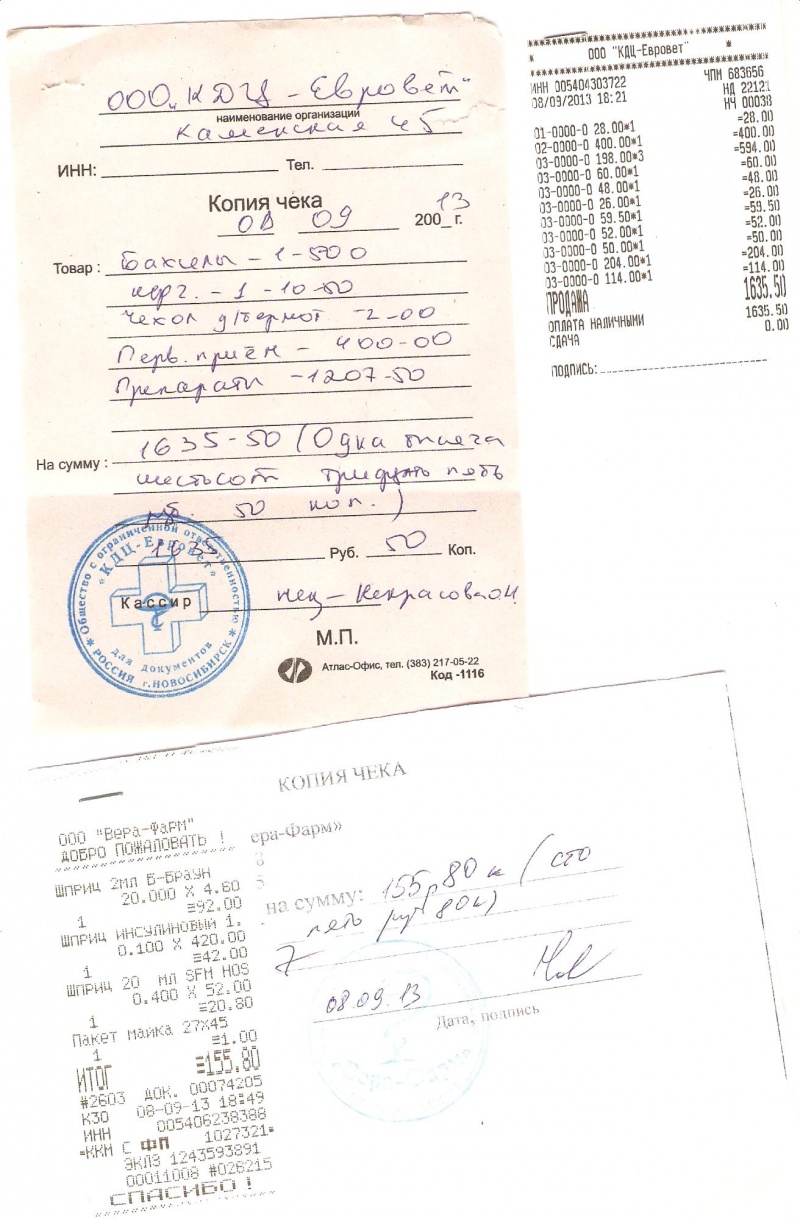 ООО "КДЦ - Евровет"
наименование организации
Каменская 45
ИНН: Тел.
Копия чека
08 09 200_ г. 13
Товар : Бахилы - 1-500
- 1 - 10-50
Чехол д/термот. -2-00
Перв. приём - 400-00
Препараты -1207-50
На сумму : 1635-50 (Одна тысяча
шестьсот тридцать пять
руб. 50 коп.)
1635 Руб. 50 Коп.
Кассир Некрасова
М.П.
Атлас-Офис, тел. (383) 217-05-22
Код -1116
Общество с ограниченной ответственностью
«КДЦ-Евровет»
для документов
РОССИЯ г.НОВОСИБИРСК
ООО "КДЦ-Евровет"
ИНН 005404303722 ЧПМ 683656
08/09/2013 18:21 НД 22121
НЧ 00038
01-0000-0 28.00*1 =28.00
02-0000-0 400.00*1 =400.00
03-0000-0 198.00*3 =594.00
03-0000-0 60.00*1 =60.00
03-0000-0 48.00*1 =48.00
03-0000-0 26.00*1 =26.00
03-0000-0 59.50*1 =59.50
03-0000-0 52.00*1 =52.00
03-0000-0 50.00*1 =50.00
03-0000-0 204.00*1 =204.00
03-0000-0 114.00*1 =114.00
ПРОДАЖА 1635.50
ОПЛАТА НАЛИЧНЫМИ 1635.50
СДАЧА 0.00
ПОДПИСЬ:
КОПИЯ ЧЕКА
ера-Фарм»
на сумму: 155р 80к (сто
пять руб 80к)
08.09.13
Дата, подпись
ООО "Вера-Фарм"
ДОБРО ПОЖАЛОВАТЬ !
ШПРИЦ 2МЛ Б-БРАУН
20.000 X 4.60
1 =92.00
ШПРИЦ ИНСУЛИНОВЫЙ 1.
0.100 X 420.00
1 =42.00
ШПРИЦ 20 МЛ SFM HOS
0.400 X 52.00
1 =20.80
Пакет майка 27X45
1 =1.00
ИТОГ =155.80
#2603 ДОК. 00074205
К30 08-09-13 18:49
ИНН 005406238388
*ККМ С ФП 1027321*
ЭКЛЗ 1243593891
00011008 #026215
СПАСИБО !